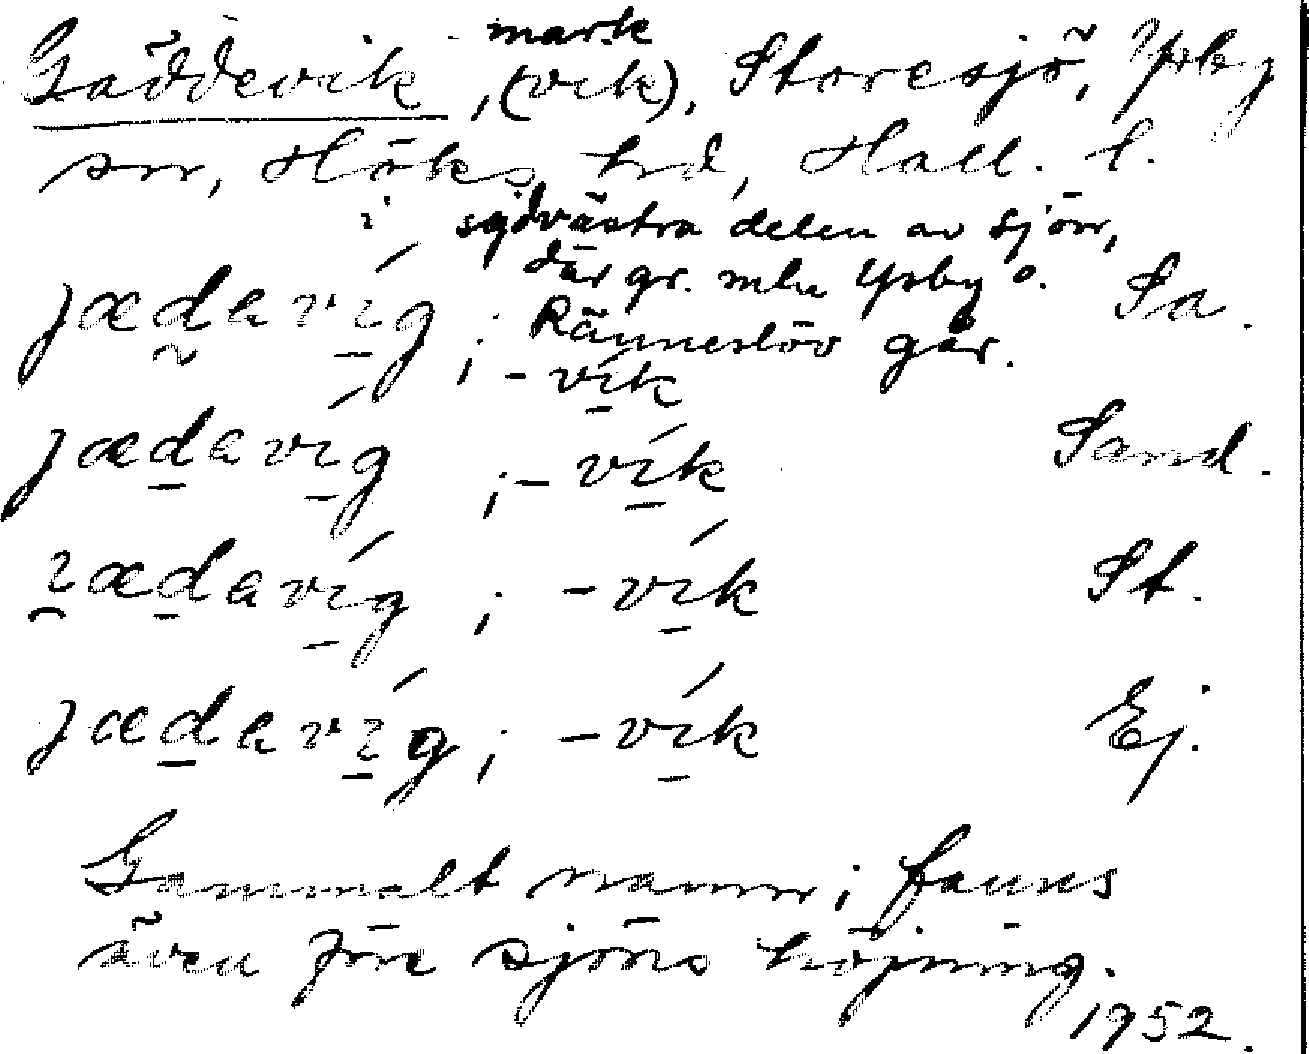 mark
Gäddevik, (vik), Storesjö, Ysby
sn, Höks hd, Hall. l.
i sydvästra delen av sjön,
där gr. mln Ysby o.
Ränneslöv går.
jædavíg ; -vík Sa.
jædavíg ; -vík Sand.
iædavíg ; -vík St.
jædavíg ; -vík Ej.
Gammalt namn; fanns
även före sjöns höjning.
1952.